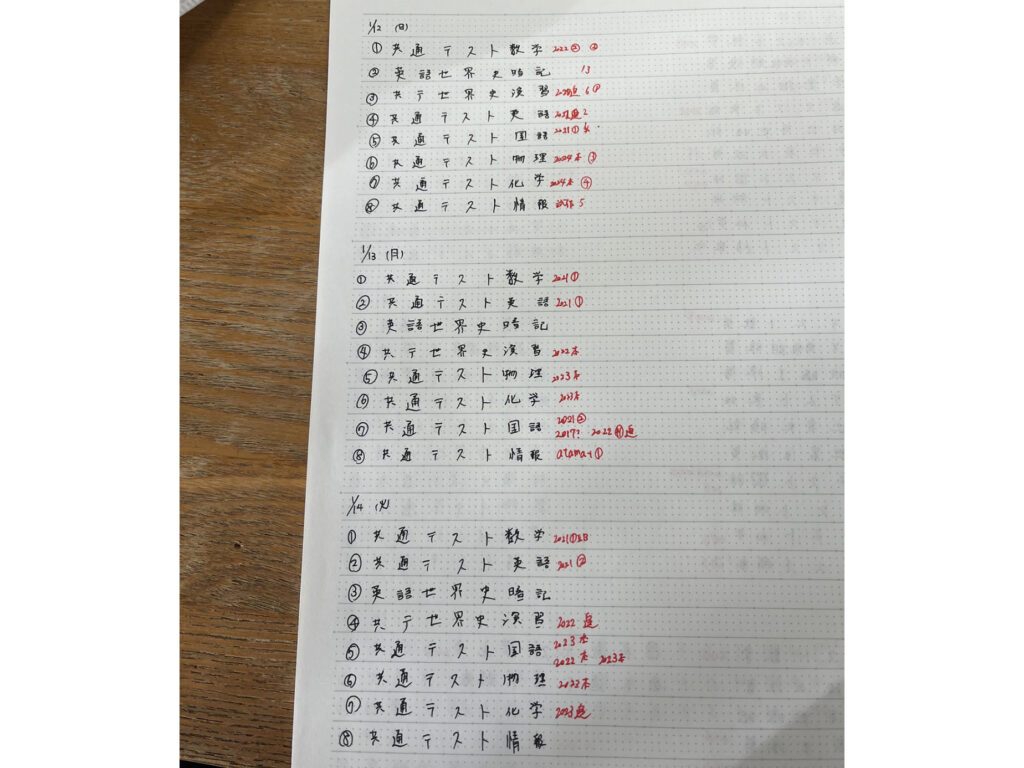 1/12 (日)
① 共通テスト数学 2022 ② ②
② 英語世界史暗記 13
③ 共テ世界史演習 追 6
④ 共通テスト英語 2021追 2
⑤ 共通テスト国語 2021①
⑥ 共通テスト物理 2024本 ③
⑦ 共通テスト化学 2024本 ④
⑧ 共通テスト情報 試作 5
1/13 (月)
① 共通テスト数学 2021①
② 共通テスト英語 2021①
③ 英語世界史暗記
④ 共テ世界史演習 2022本
⑤ 共通テスト物理 2023本
⑥ 共通テスト化学 2023本
⑦ 共通テスト国語 2021②
2017? 2022 追
⑧ 共通テスト情報 atama+①
1/14 (火)
① 共通テスト数学 2021①ⅡB
② 共通テスト英語 2021②
③ 英語世界史暗記
④ 共テ世界史演習 2022 追
⑤ 共通テスト国語 2023本
2022本 2023本
⑥ 共通テスト物理 2022本
⑦ 共通テスト化学 2023追
⑧ 共通テスト情報